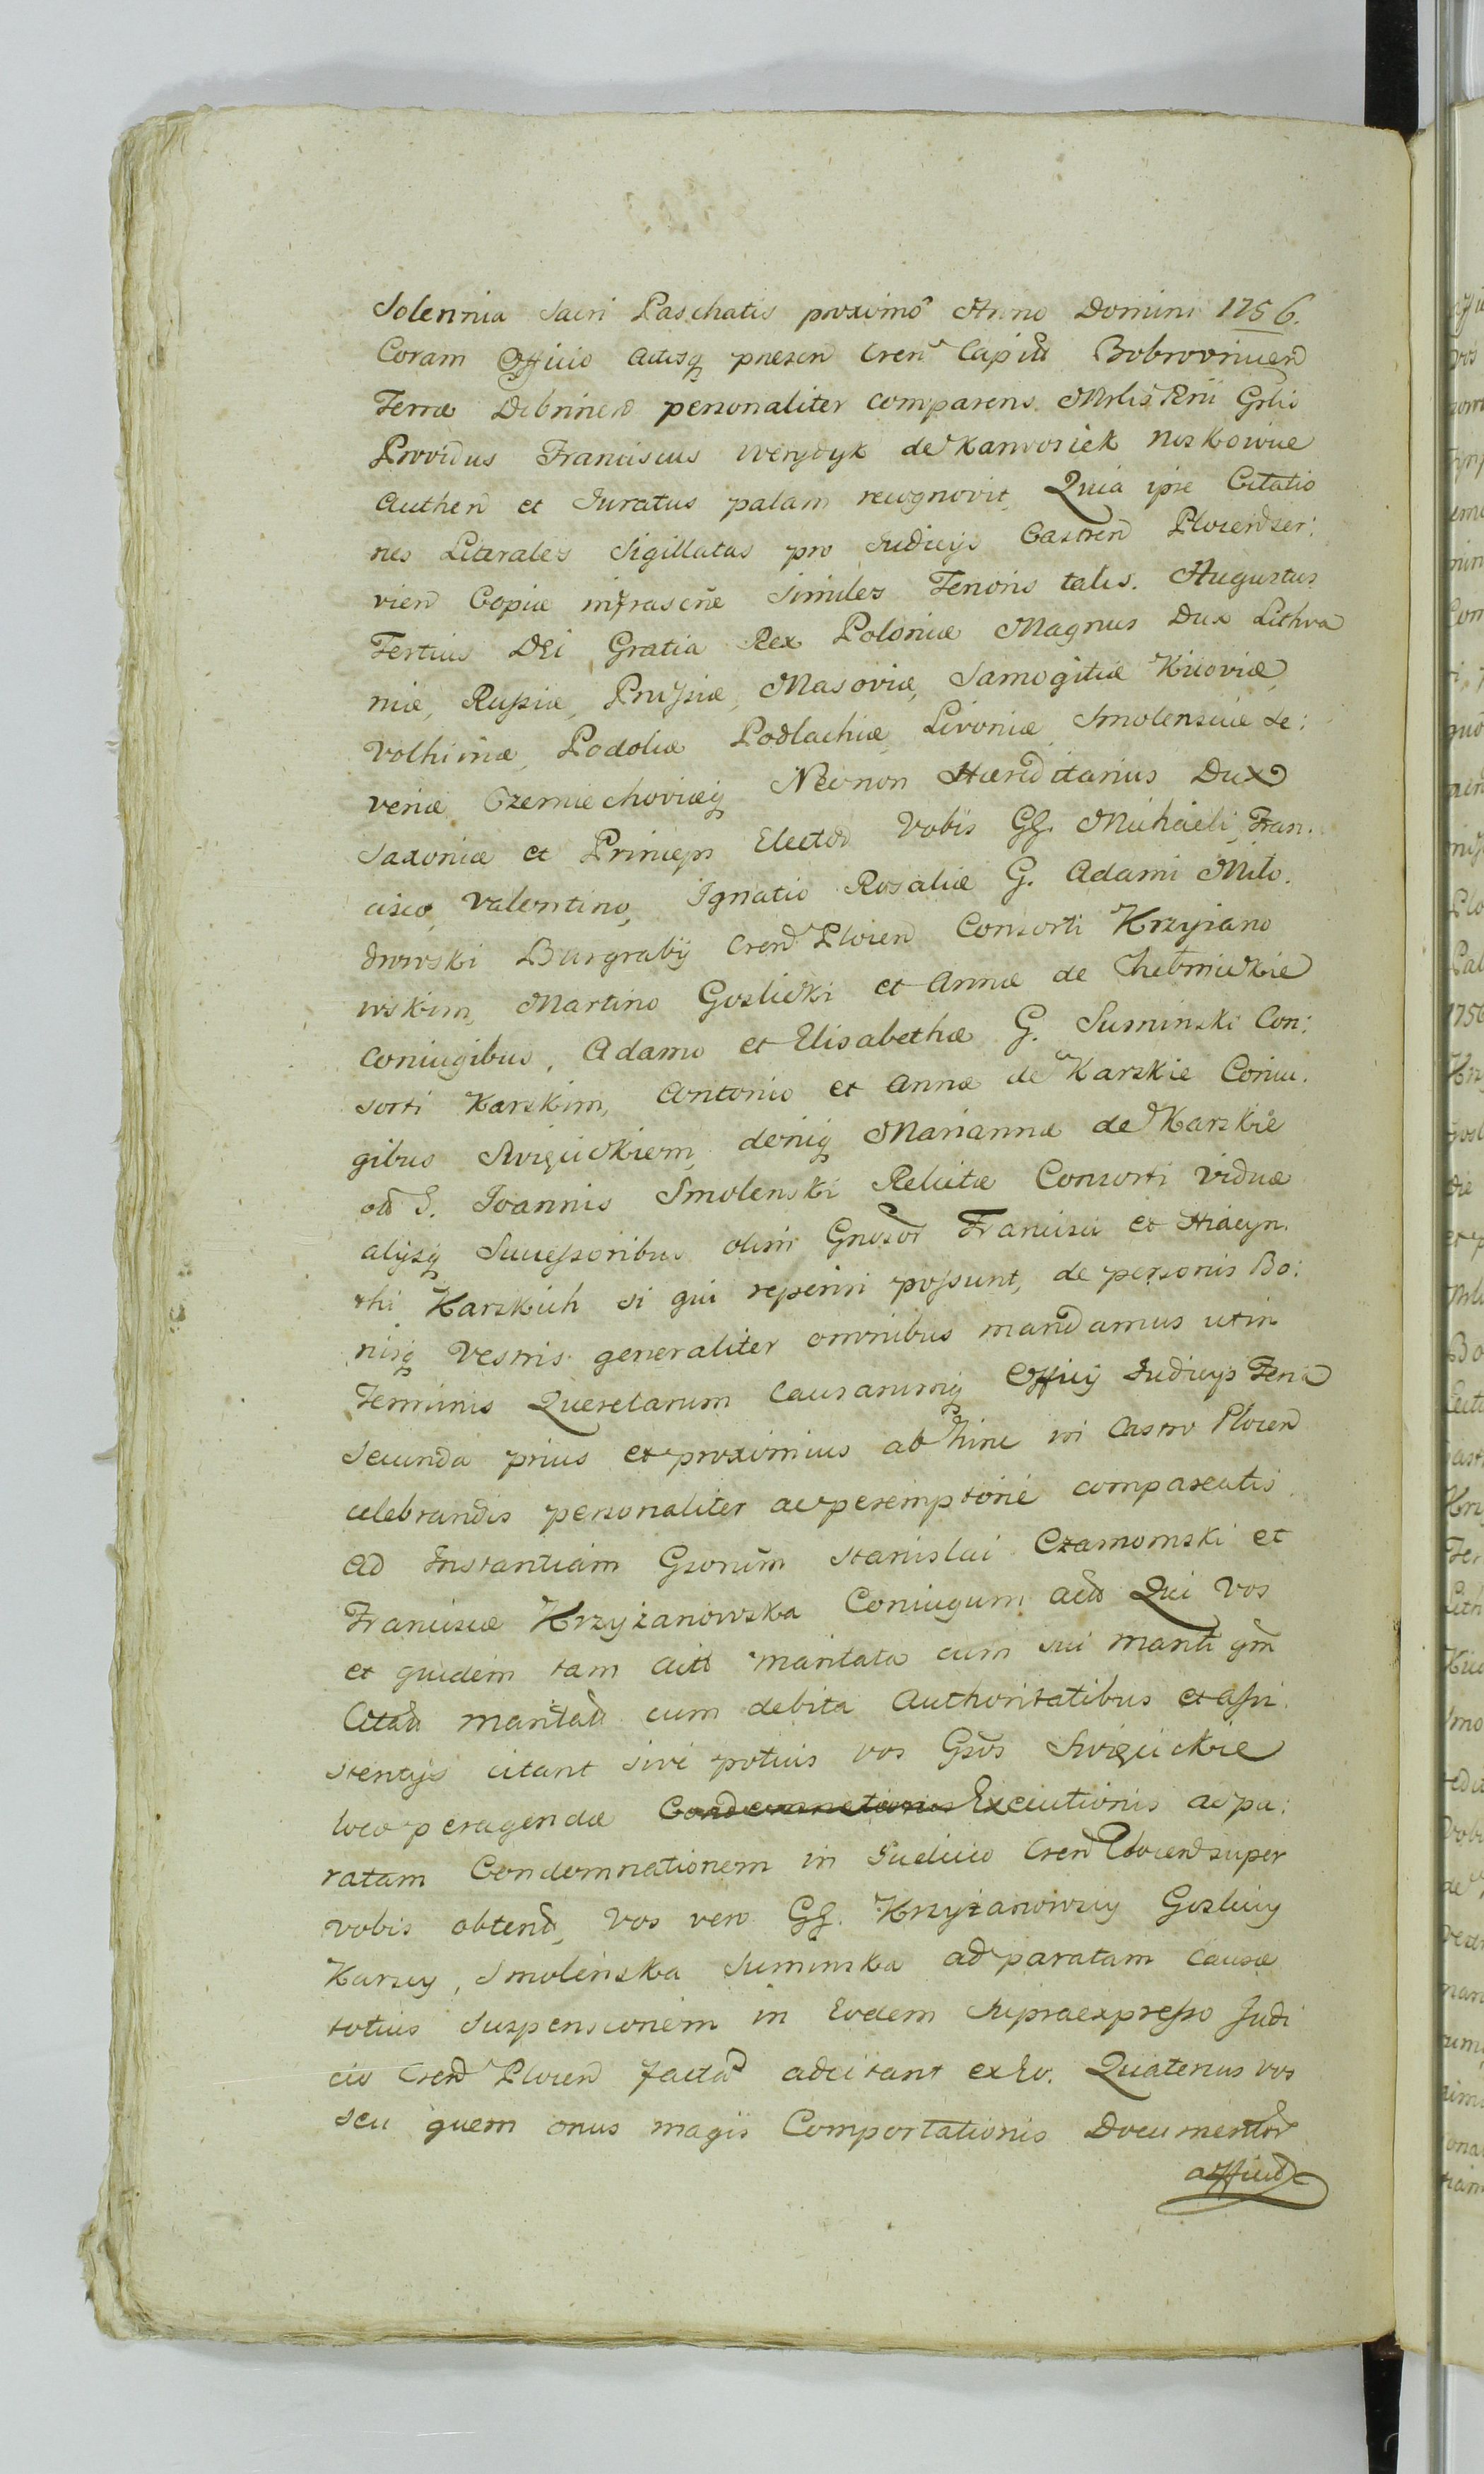 Solennia Sacri Paschatis proximo Anno Domini 1756.
Coram Officio Actisq presen Cren Capitt Bobrovinien
Terræ Dobrinen personaliter comparens Mrlis Rni Grlis
Providus Franciscus Werydyk de Karwosiek Noskowice
Authen et Juratus palam recognovit, Quia ipse Citatio
nes Literales Sigillatas pro Judicijs Castren Plocen ser:
vien Copiæ infrascrte Similes Tenoris talis. Augustus
Tertius DEi Gratia Rex Poloniæ Magnus Dux Lithva
niæ, Russiæ, Prussiæ, Masoviæ, Samogitiæ Kijoviæ,
Volhiniæ, Podoliæ Podlachiæ, Livoniæ, Smolensciæ Se:
veriæ Czerniechoviæq Necnon Hæreditarius Dux
Saxoniæ et Princeps Elector Vobis GG. Michaeli, Fran.
cisco, Valentino, Ignatio Rosaliæ G. Adami Milo.
drowski Burgrabij Cren Plocen Consorti Krzyżano
wskim, Martino Goslicki et Annæ de Chełmickie
Coniugibus, Adamo et Elisabethæ G. Suminski Con:
sorti Karskim, Antonio et Annæ de Karskie Coniu.
gibus Swięcickiem, deniq Mariannæ de Karskie
olt G. Joannis Smolenski Relictæ Consorti Viduæ
alijsq Successoribus olim Gnosor Francisci et Hiacyn.
thi Karskich si qui reperiri possunt, de personis Bo:
nisq Vestris generaliter omnibus mandamus ut in
Terminis Querelarum Causarumq Officij Judicijs Feria
Secunda prius et proximius ab hinc in Castro Plocen
celebrandis personaliter ac peremptorie compareatis.
Ad Instantiam Gsorum Stanislai Czarnomski et
Franciscæ Krzyżanowska Coniugum Act Qui Vos
et quidem tam Citt maritata cum sui mariti qm
Citatt maritatt cum debita Authoritatibus et assi.
stentijs citant sive potius vos Gsos Swięcickie
loco peragendæ Condemnationis Executionis ad pa:
ratam Condemnationem in Judicio Cren Plocen super
vobis obtent, Vos vero GG. Krzyżanowscy Goslicy
Karscy, Smoleńska Suminska ad paratam Causæ
totius Suspensionem in Eodem Supraexpresso Judi
cio Cren Plocen factam adcitant ex Eo. Quatenus vos
seu quem onus magis Comportationis Documentor
afficit